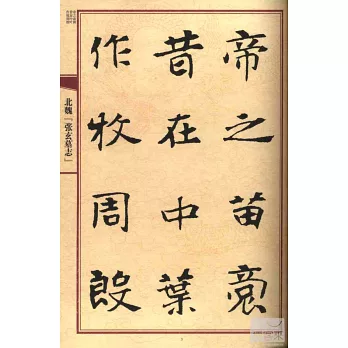 帝之苗裔
昔在中葉
作牧周殷
北魏『张玄墓志』